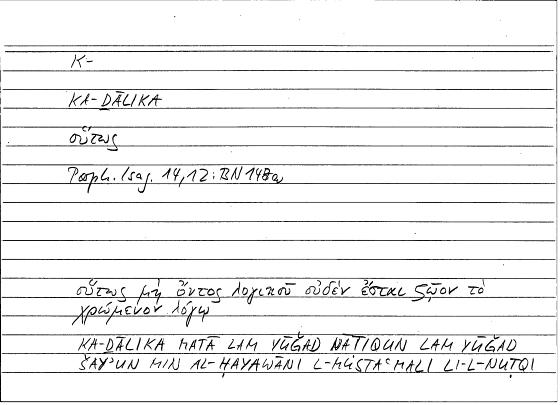 K-
KA-ḎĀLIKA
οὕτως
Porph. Isag. 14,12: BN 148a
οὕτως μὴ ὄντος λογικοῦ οὐδέν ἔσται ζῷον τὸ
χρώμενον λόγῳ
KA-ḎĀLIKA MATĀ LAM YŪǦAD NĀṬIQUN LAM YŪǦAD
ŠAYʾUN MIN AL-ḤAYAWĀNI L-MUSTAʿMALI LI-L-NUṬQI